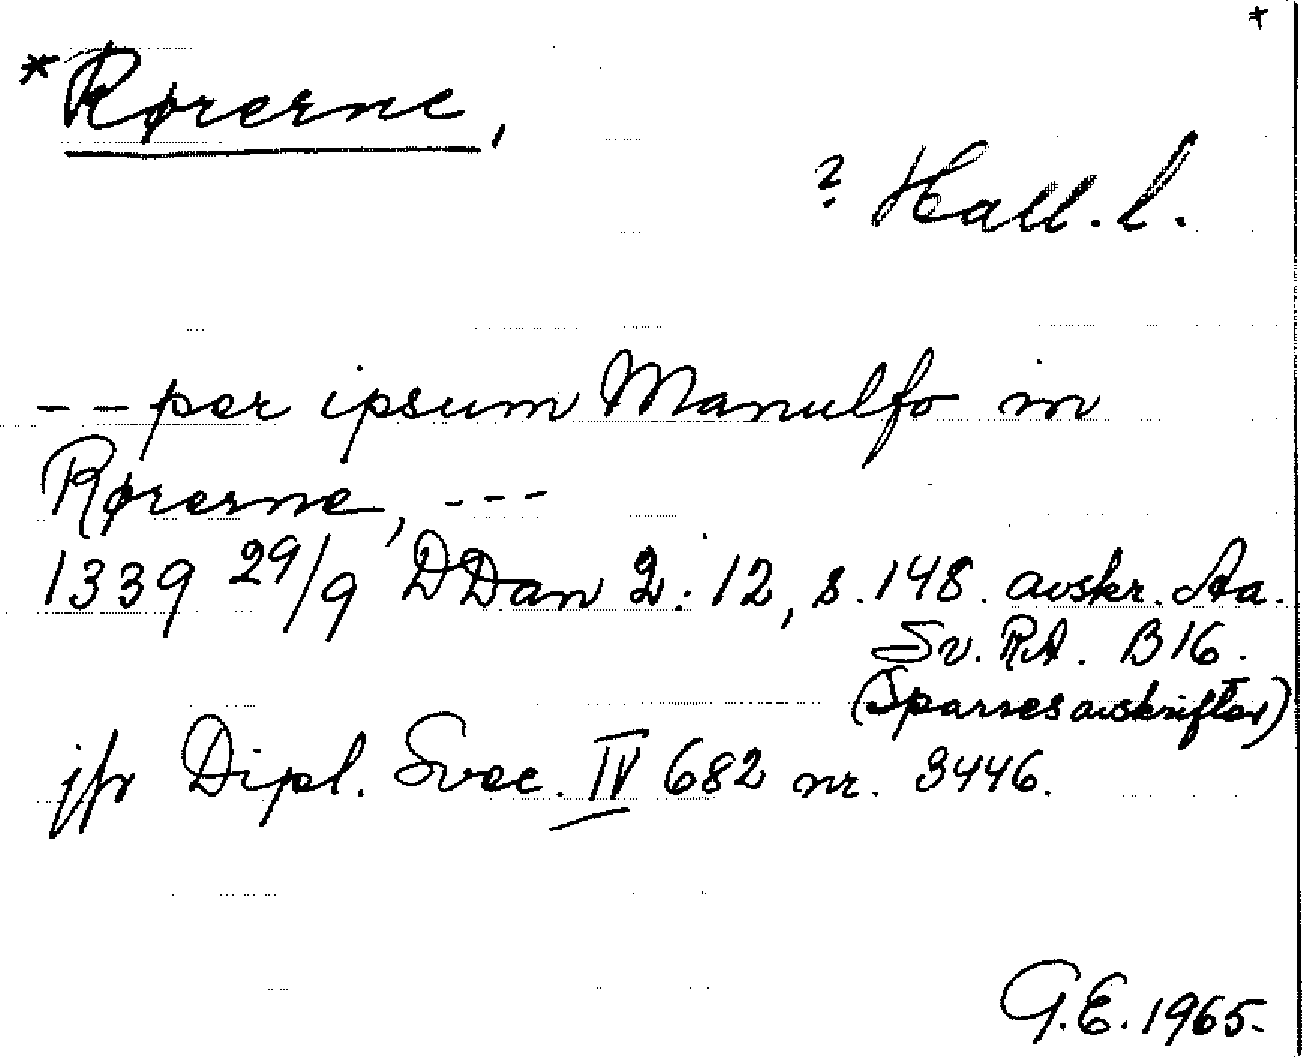 *
* Rørerne,
? Hall. l.
-- per ipsum Manulfo in
Rørerne, ---
1339 29/9 DDan 2:12, s. 148. avskr. Aa.
Sv. RA. B16.
(Sparres avskrifter)
jfr Dipl. Svec. IV 682 nr. 3446.
G.E. 1965.